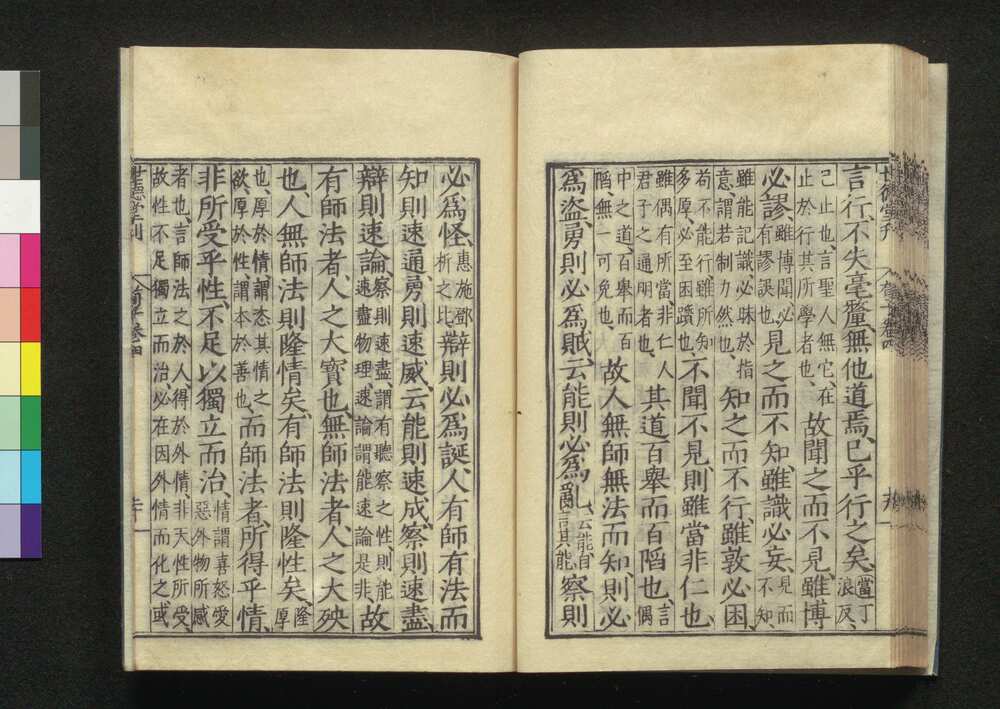 言行、不失毫釐、無他道焉、已乎行之矣、當丁浪反、
己止也、言聖人無它、在止於行其所學者也、故聞之而不見、雖博
必謬、雖博聞必有謬誤也、見之而不知、雖識必妄、見而不知、
雖能記識必昧於指意、謂若制力然也、知之而不行、雖敦必困、
苟不能行、雖所知多厚必至困躓也、不聞不見、則雖當非仁也、
雖偶有所當、非仁人君子之通明者也、其道百舉而百陷也、言偶
中之道、百舉而百陷、無一可免也、故人無師無法而知、則必
爲盜、勇則必爲賊、云能則必爲亂、云能、自言其能、察則
必爲怪、惠施鄧析之比、辯則必爲誕、人有師有法而
知則速通、勇則速威、云能則速成、察則速盡、
辯則速論、察則速盡、謂有聽察之性、則能速盡物理、速論謂能速論是非、故
有師法者、人之大寶也、無師法者、人之大殃
也、人無師法則隆情矣、有師法則隆性矣、隆厚
也、厚於情、謂恣其情之欲、厚於性、謂本於善也、而師法者、所得乎情、
非所受乎性、不足以獨立而治、情謂喜怒愛惡外物所感
者也、言師法之於人、得於外情、非天性所受、故性不足獨立而治、必在因外情而化之、或